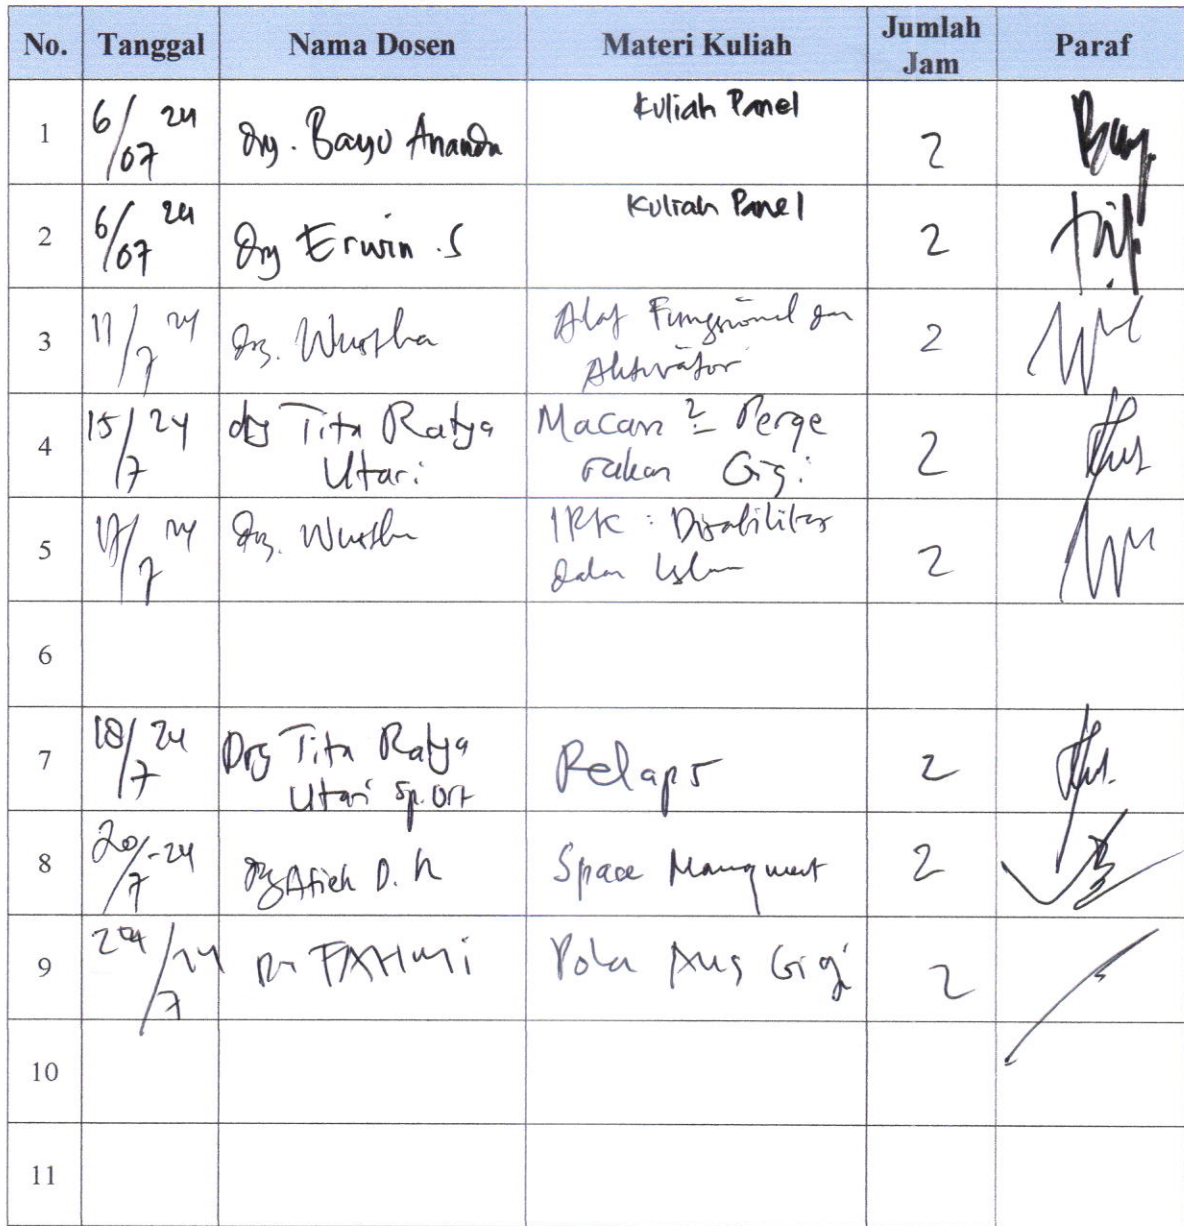 No. Tanggal Nama Dosen Materi Kuliah Jumlah Jam Paraf
1 6/07 24 drg. Bayu Ananda Kuliah Panel 2
2 6/07 24 drg Erwin .S Kuliah Panel 2
3 11/7 24 drg. Wustha Alat Fungsional dan
Aktivator 2
4 15/7 24 drg Tita Ratya Macam 2 Perge
Utari rakan Gigi 2
5 17/7 24 drg. Wustha IRK : Disabilitas
dalam Islam 2
6
7 18/7 24 Drg Tita Ratya
Utari Sp. Ort Relaps 2
8 20/7-24 drg Afieh D. K Space 2
9 24/7 24 FAHMi Pola Aus Gigi 2
10
11